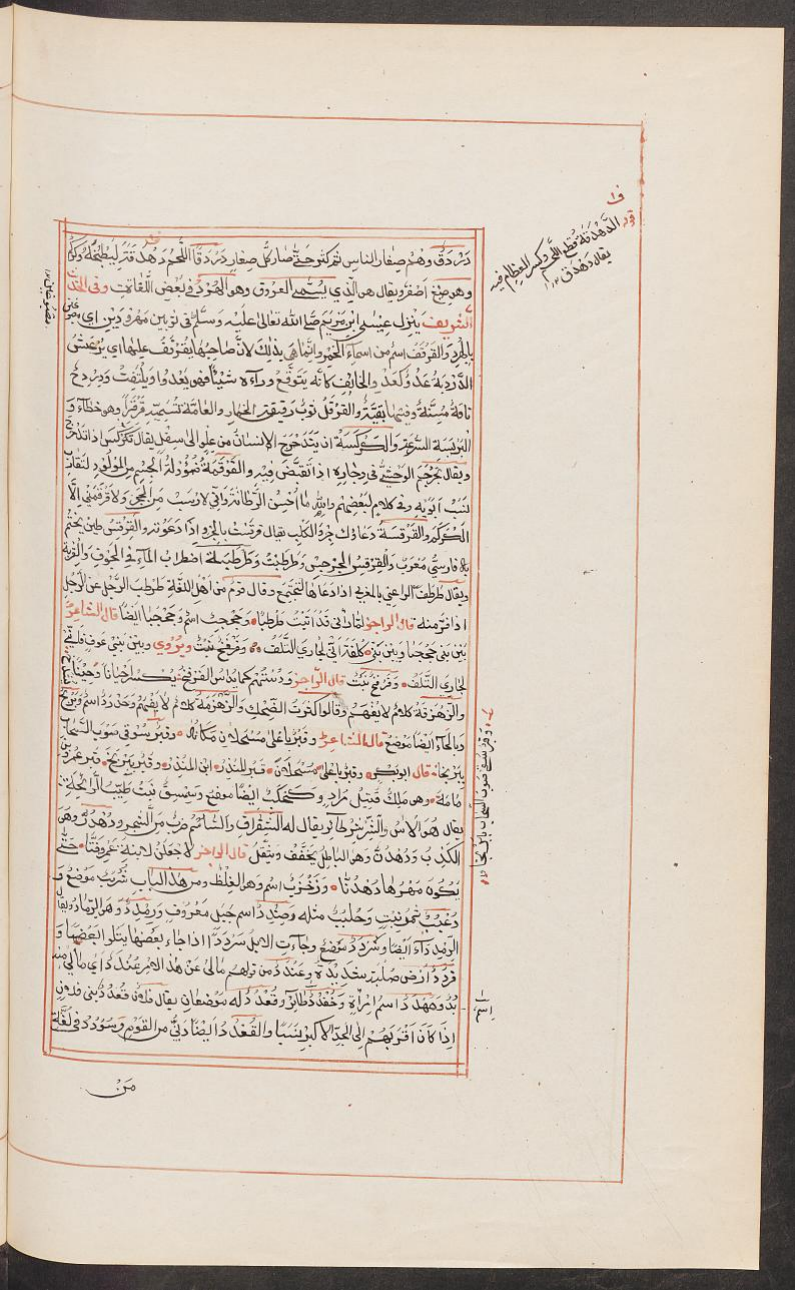 دَرْدَقٌ وهُمْ صِغار الناس ثم كثر حتى صار كل صغار دردقا اللحم دهدقة
وهو صِبْغ أصفرُ ويقال هو الذي يسمى العروق وهو الهُرْدُ في بعض اللغات وفي الحديث
الشريف ينزل عيسى ابن مريم صلى الله تعالى عليه وسلم في ثوبين مهرودين اي
والقرقف اسم من أسماء الخمر وانما هي بذلك لان صاحبها يقرقف عليها اي يرعش
عَدْوٌ كعَدْو الخايف كأنه يتوقع وراءه شيئا فهو يعدوا ويلتفت ودردح
ناقة مُسِنَّة وفيها بقيّة والقرقل ثوب رقيق الخمار والعامة تسميه قرقرا وهو خطاء و
السرعة والكركسة ان يتدحرج الانسان من علو الى سفل يقال تكركس اذا تدحرج
ويقال تجرجم الوحشي في وجاره اذا تقبض فيه والقرقمة
أبويه وفي كلام لبعضهم والله ما احسن الرطانة وإني لارسب من
والقرقسة دعاؤك جرو الكلب يقال قرقست بالجرو اذا دعوته والقرقس طين يختم
به فارسي معرب والقرقس الجرجس وطرطبت وطرطبة اضطراب الماء في الجوف والقربة
ويقال طرطب الراعي بالمعزى اذا دعاها لتجتمع وقال قوم من أهل اللغة طرطب الرجل عن الرجل
اذا فر منه قال الراجز وجحجب اسم وجحجبا ايضا قال الشاعر
بين بني جحجبا وبين بني كلفة أنى لجاري التلف وفرفخ نبت ويروى وبين بني عوف فانى
لجاري التلف وفرفخ نبت قال الراجز ودستهم كما يداس الفرفخ يكسر احيانا وحينا
والزهزقة كلام لا يفهم وقالوا كثرت الضحك والزهزمة كلام لا يفهم وخذ رد اسم وبربخ
وبالحاء ايضا موضع قال الشاعر وقبر باعلى مسحلان مكانه وقبر سقى صوب السحاب
ببربخا قال ابو بكر وقبر باعلى مسحلان قبر للمنذر ابن المنذر وقبر ببربخ قبر عمرو بن
مامة وهو ملك قتيل مراد وكحكب ايضا موضع وسمسق نبت طيب الرائحة
يقال هو الآس والشرشر طائر يقال له الشقراق والسأسم ضرب من الشجر ودهدن وهو
الكذب ودهدن وهو الباطل يخفف ويثقل قال الراجز لاجعلن لابنة عمرو فنا حتى
يكون مهرها دهدنا وزخزب اسم وهو الغلظ ومن هذا الباب شربب موضع و
دعبب ثمر نبت وحلبب مثله وصندد اسم جبل معروف ورمدد وهو الرماد ويقال
الرمد داء ايضا وسردد موضع وجاءت الابل سرددا اذا جاء بعضها يتلوا بعضا و
قردد أرض صلبة شديدة وعندد من قولهم مالي عن هذا الامر عندد اي مالي منه
بد ومهدد اسم امراة وخفدد طائر وقعدد له موضعان يقال فلان قعدد بني فلان
اذا كان اقربهم الى الجد الاكبر نسبا والقعدد ايضا دني من القوم وسودد في لغة
من
قوله الدهدقة قطع اللحم وكسر العظام فيه
يقال دهدق
وقبر سقى صوب السحاب ببربخا